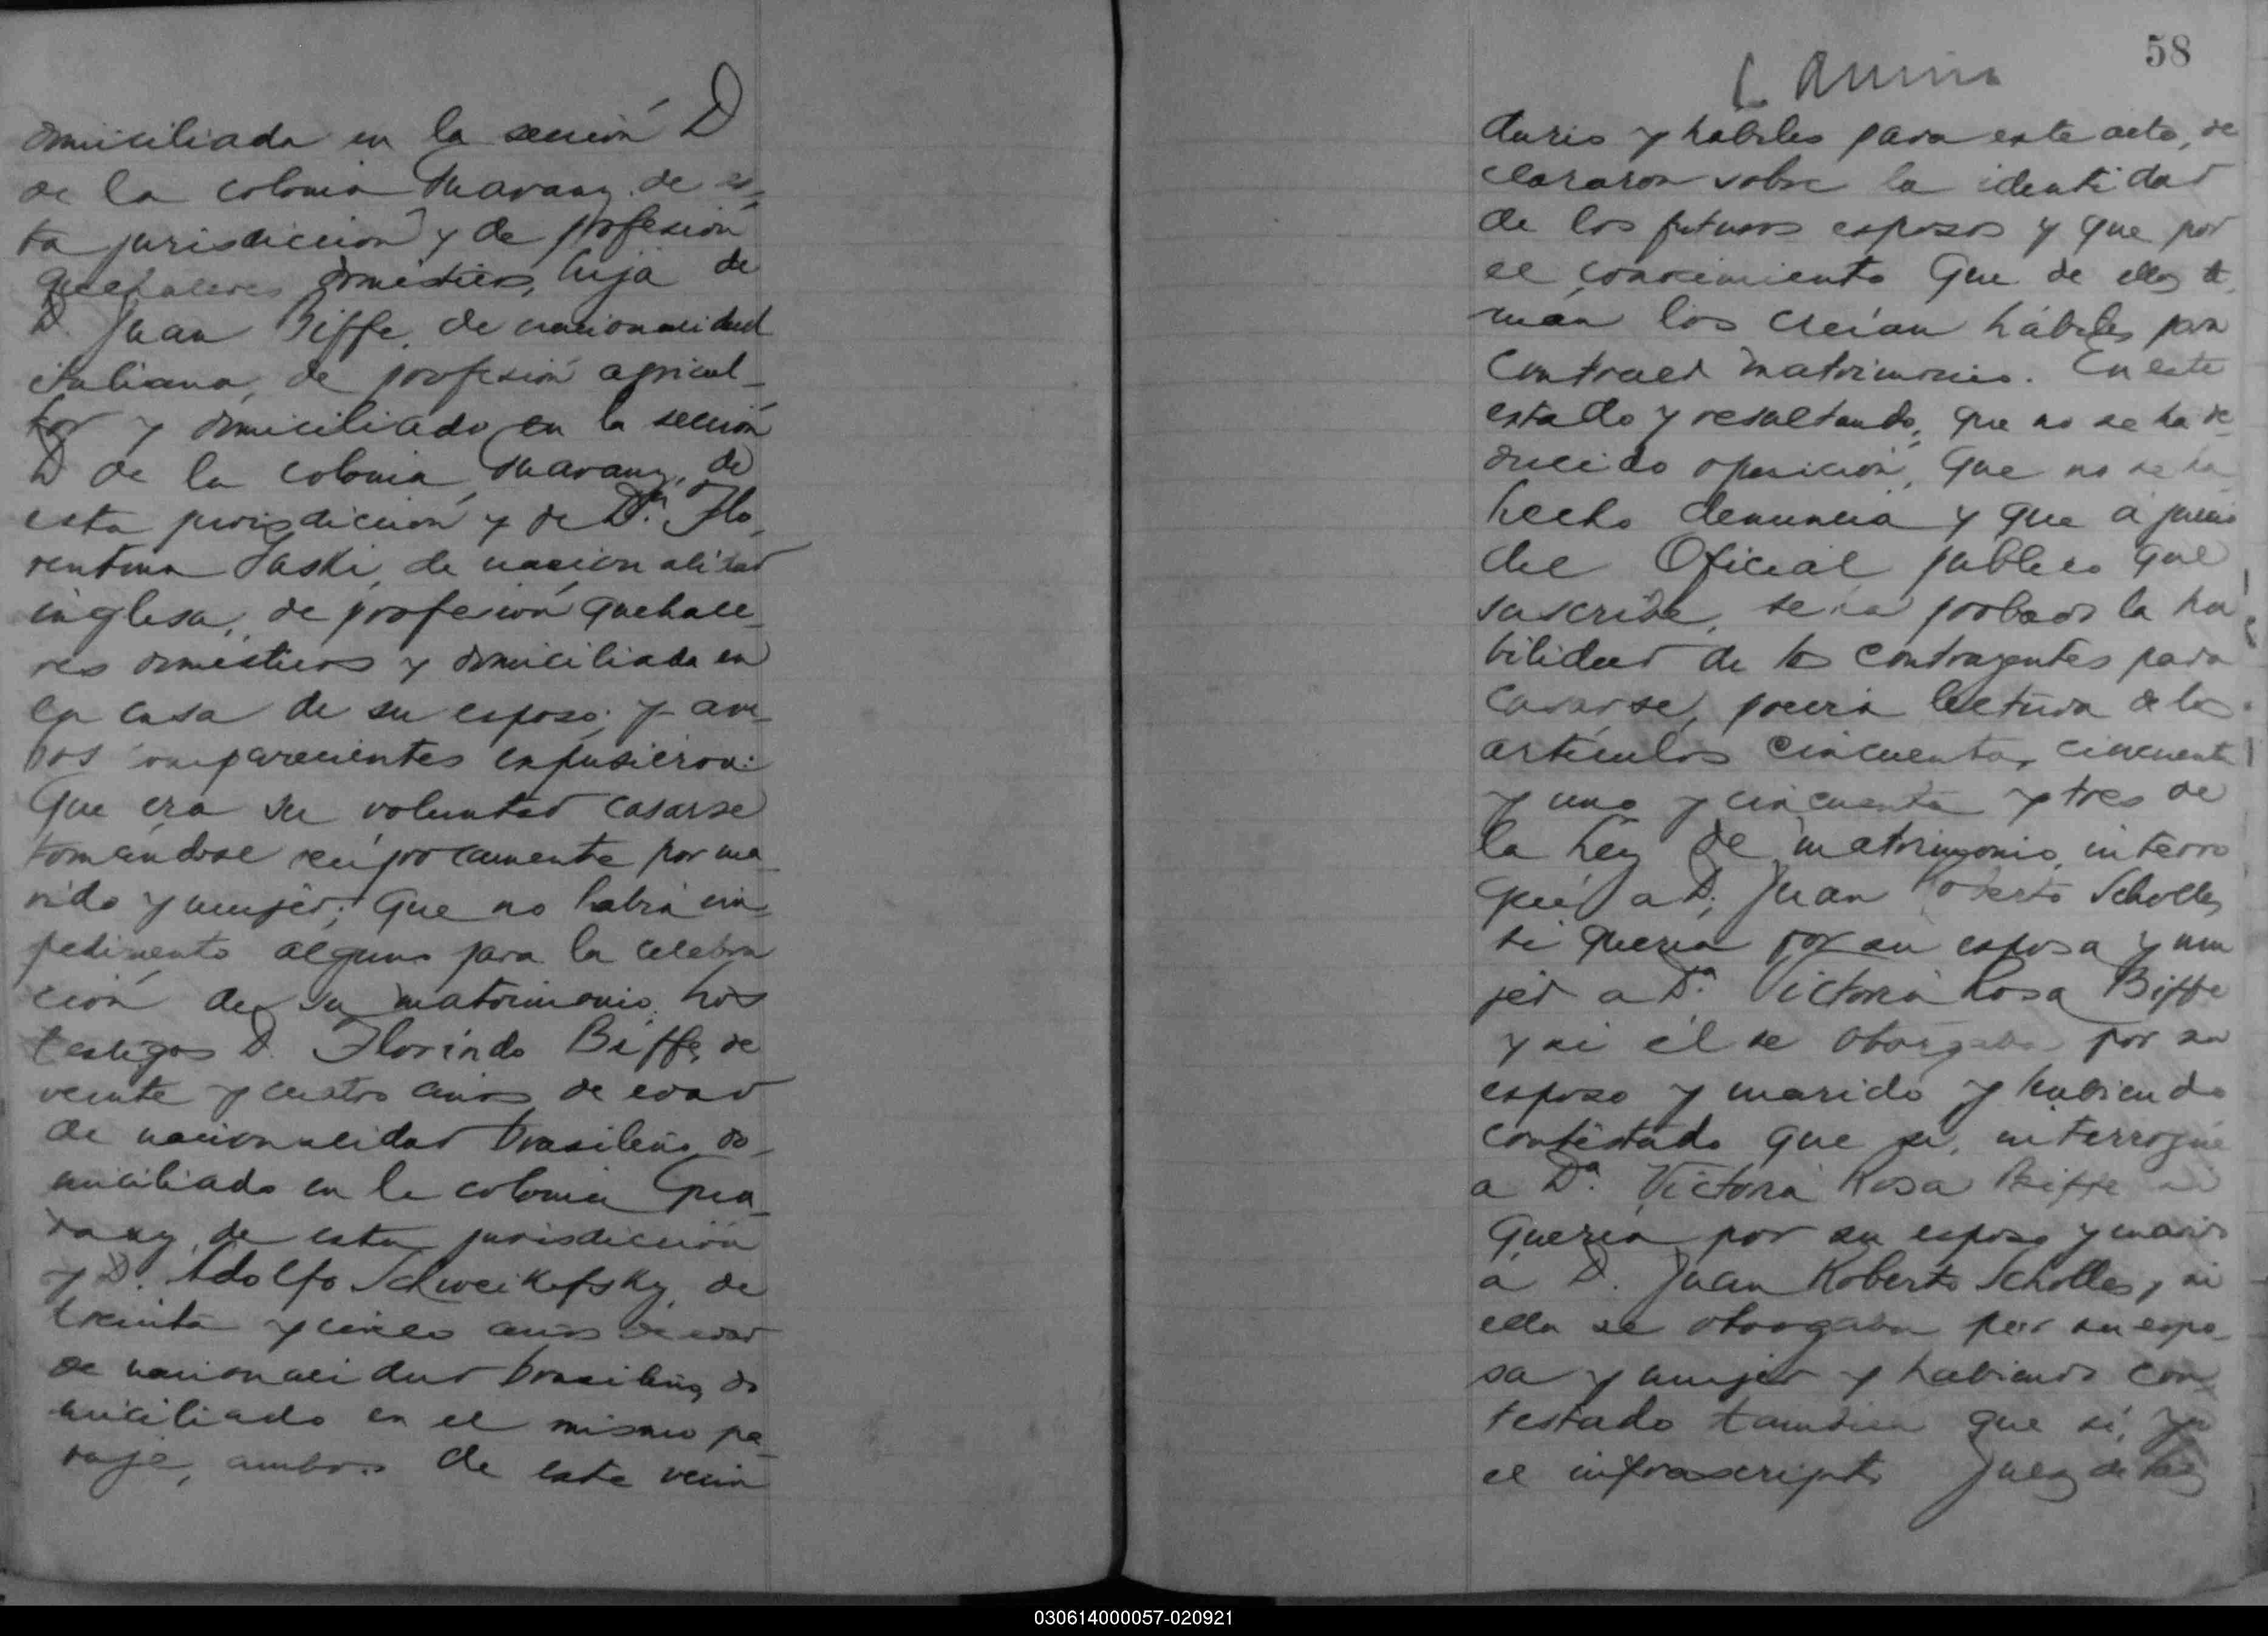 domiciliada en la sección D
de la colonia Guarany de es-
ta jurisdicción y de profesión
quehaceres domésticos, hija de
D. Juan Biffe, de nacionalidad
italiana, de profesión agricul-
tor y domiciliado en la sección
D de la colonia Guarany, de
esta jurisdicción y de Dª. Flo-
rentina Jaski, de nacionalidad
inglesa, de profesión quehace-
res domésticos y domiciliada en
la casa de su esposo; y am-
bos comparecientes expusieron:
Que era su voluntad casarse
tomándose recíprocamente por ma-
rido y mujer; que no había im-
pedimento alguno para la celebra
ción de su matrimonio. Los
testigos D. Florindo Biffe, de
veinte y cuatro años de edad
de nacionalidad brasileño, do-
miciliado en la colonia Gua-
rany, de esta jurisdicción
y D. Adolfo Schweikefsky, de
treinta y cinco años de edad
de nacionalidad brasileño, do
miciliado en el mismo pa-
raje, ambos de este vecin
58
dario y hábiles para este acto, de
clararon sobre la identidad
de los futuros esposos y que por
el conocimiento que de ellos te-
nían los creían hábiles para
contraer matrimonio. En este
estado y resultando, que no se ha de-
ducido oposición, que no se ha
hecho denuncia y que a juicio
del Oficial público que
suscribe, se ha probado la ha
bilidad de los contrayentes para
casarse, previa lectura de los
artículos cincuenta, cincuenta
y uno y cincuenta y tres de
la Ley de matrimonio, interro
gué a D. Juan Roberto Scholles,
si quería por su esposa y mu
jer a Dª. Victoria Rosa Biffe
y si él se otorgaba por su
esposo y marido y habiendo
contestado que sí, interrogué
a Dª. Victoria Rosa Biffe si
quería por su esposo y marido
a D. Juan Roberto Scholles, si
ella se otorgaba por su espo-
sa y mujer y habiendo con-
testado también que sí, yo
el infrascripto Juez de Paz
030614000057-020921